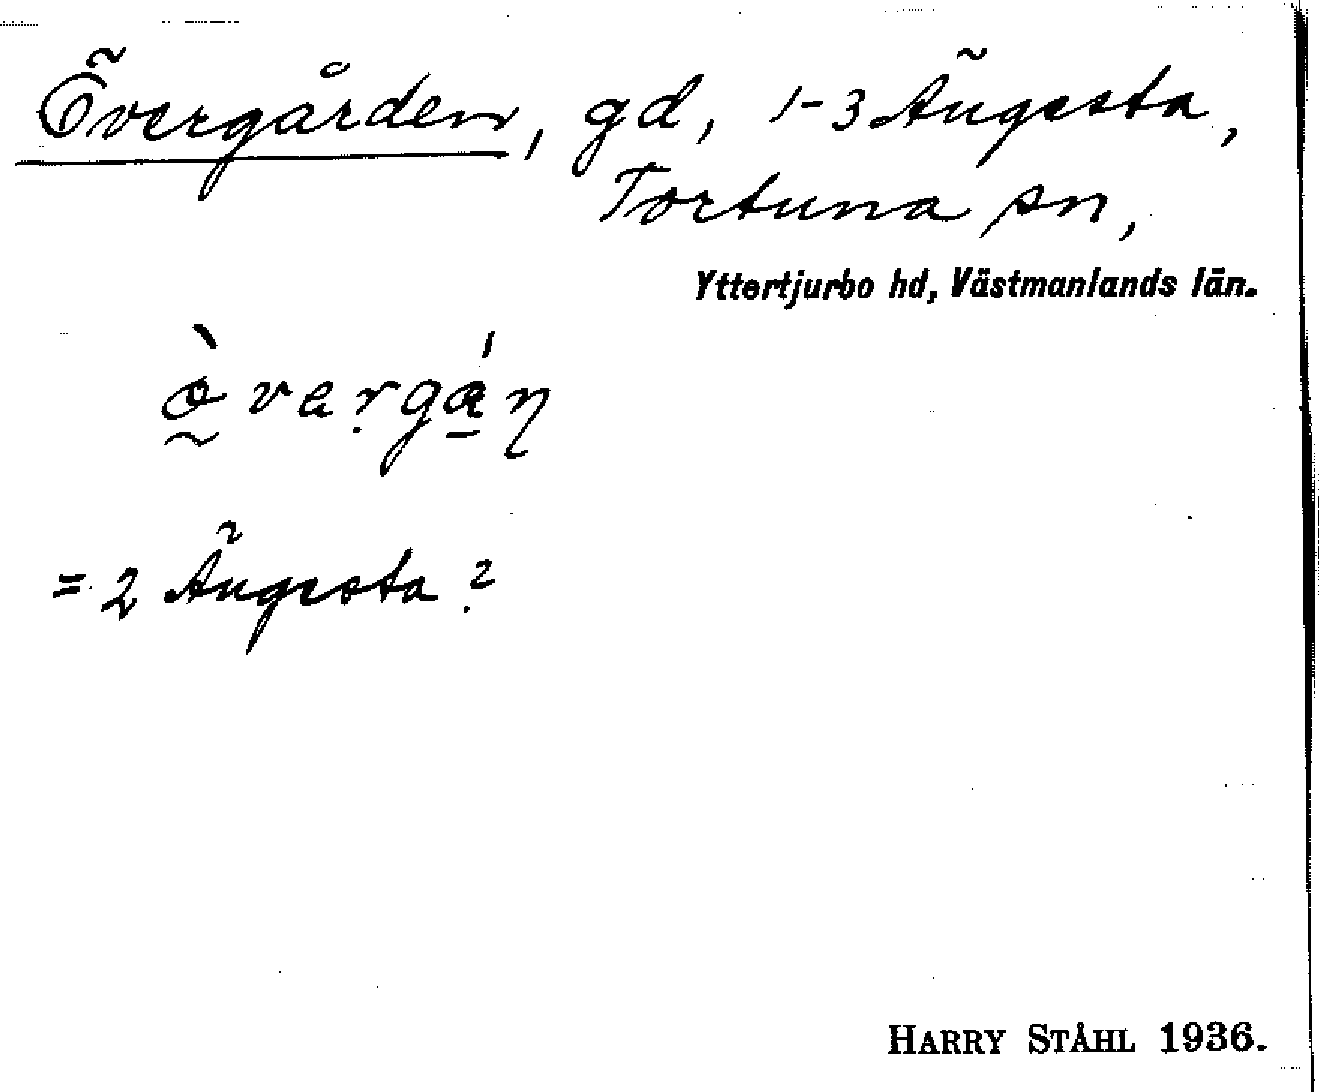 Övergården, gd, 1-3 Ängesta,
Tortuna sn,
Yttertjurbo hd, Västmanlands län.
= 2 Ängesta?
HARRY STÅHL 1936.